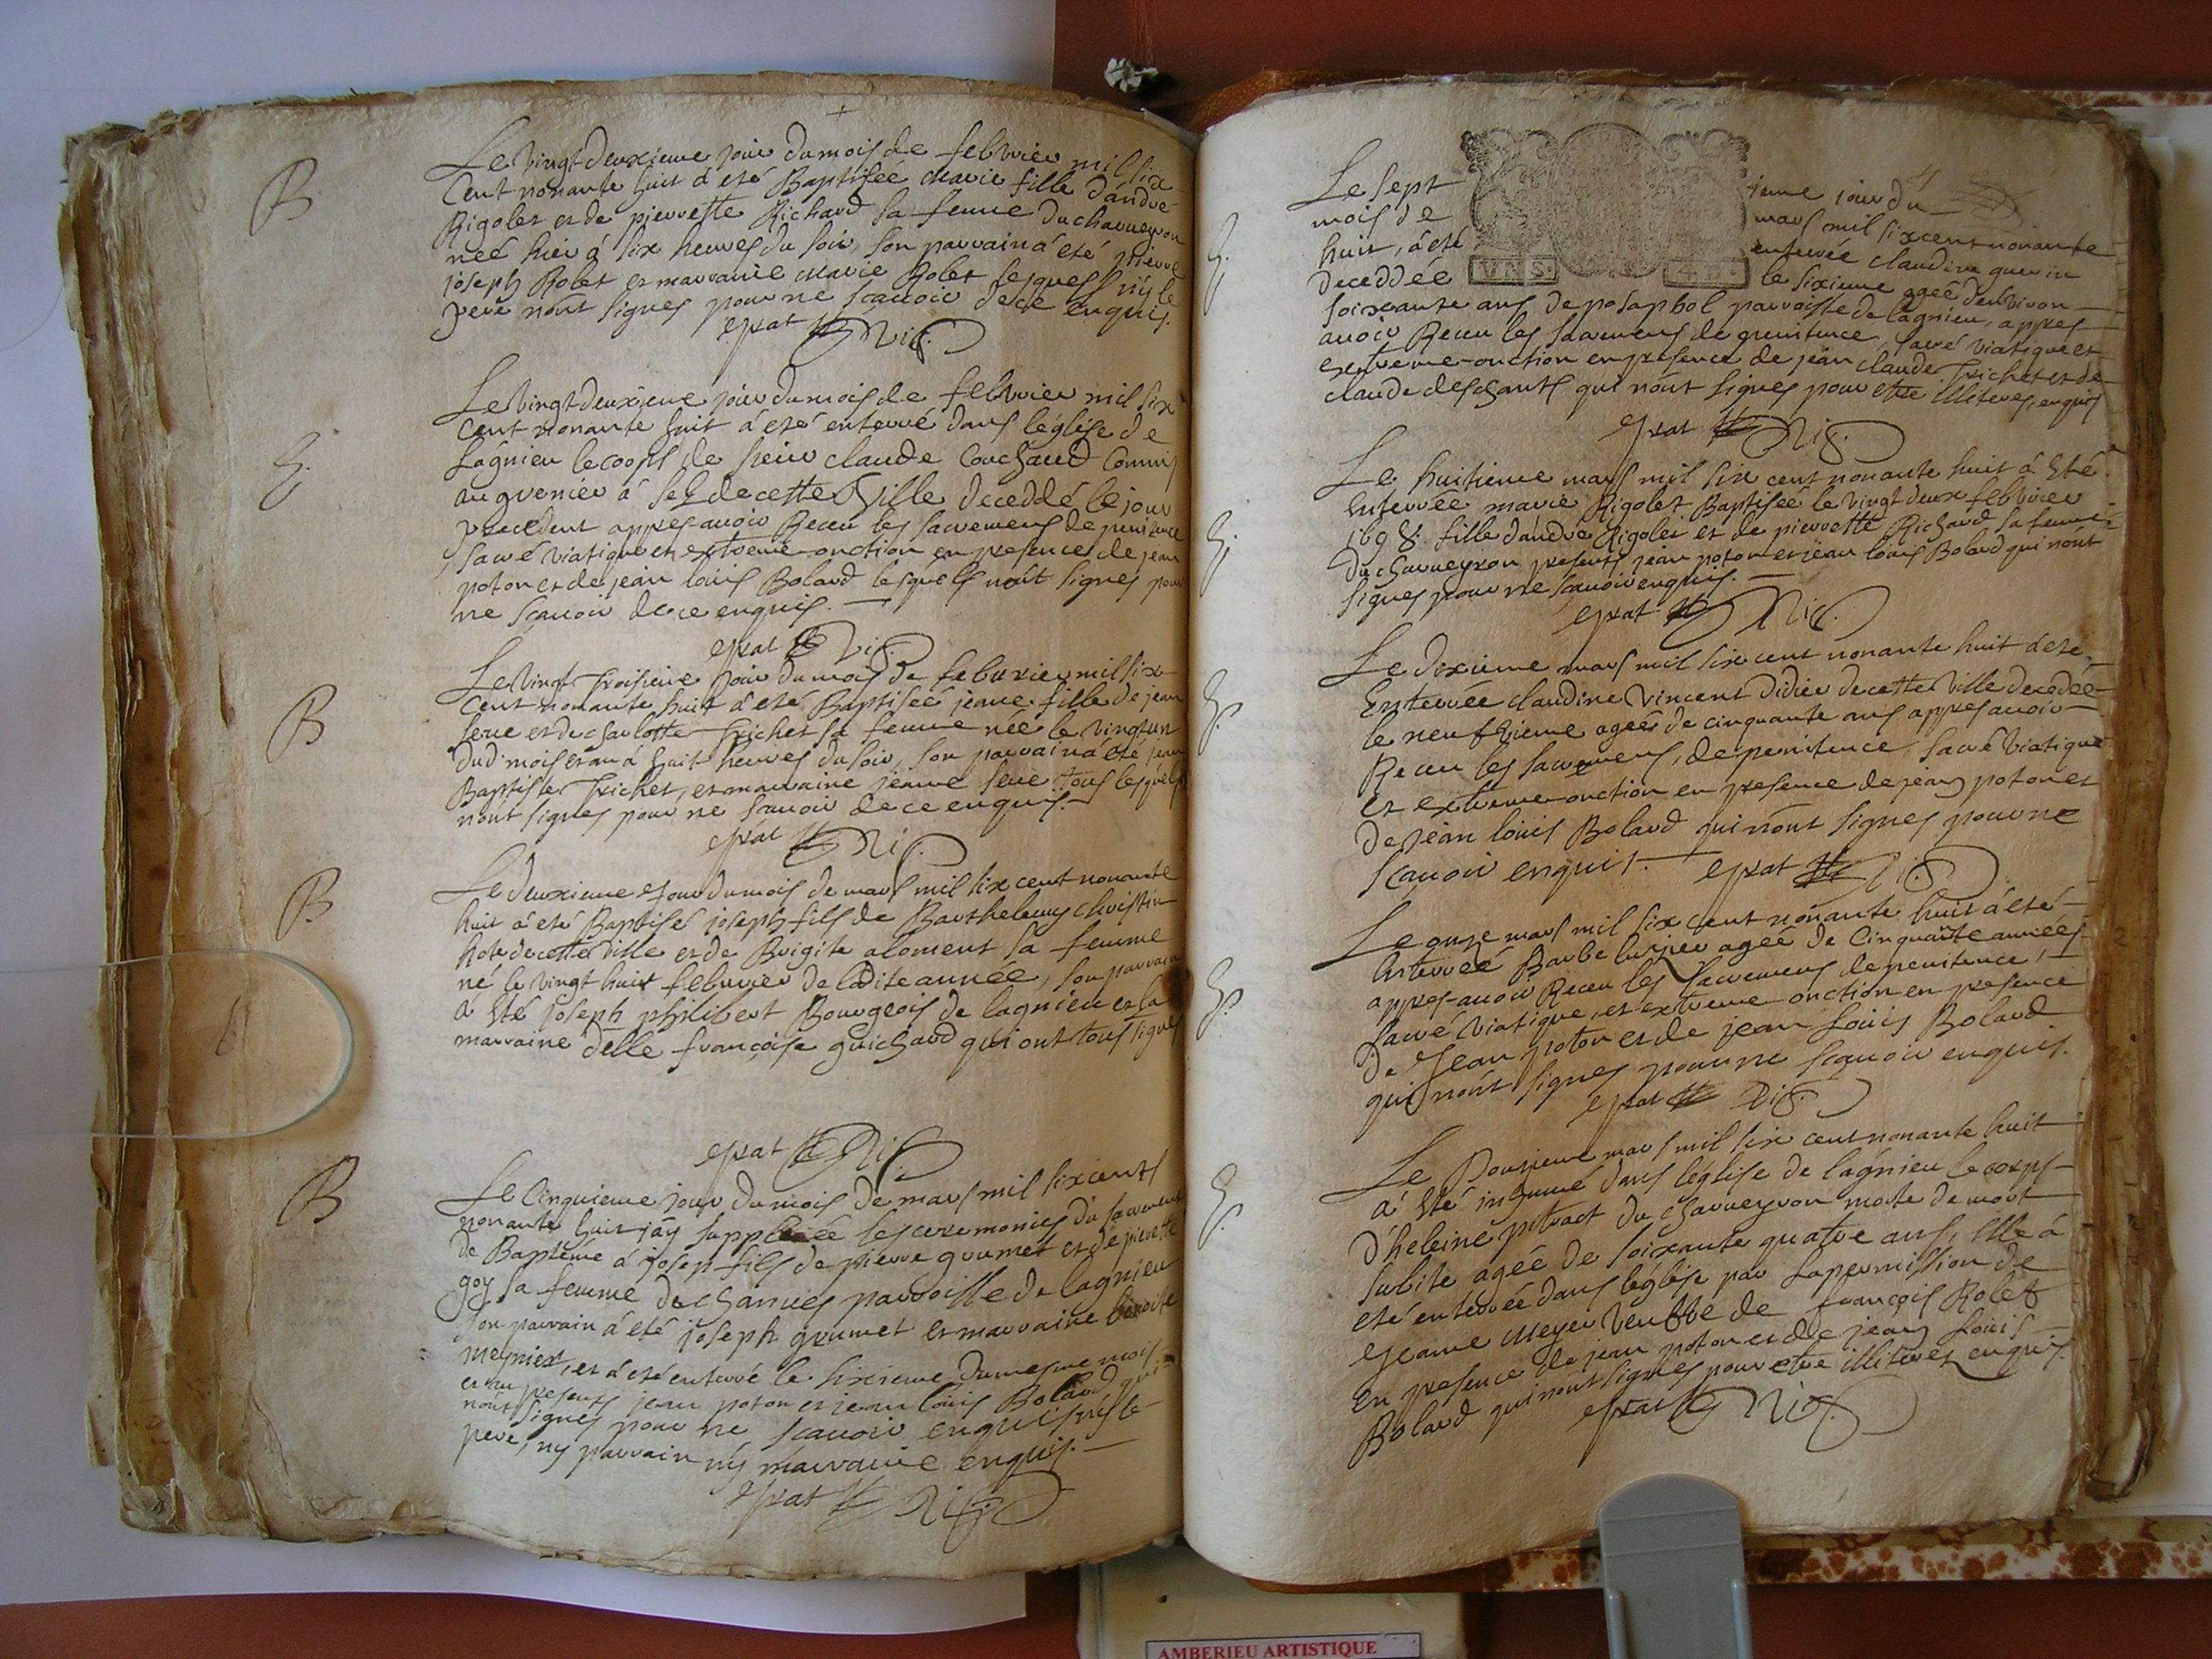 B
Le vingt deuxieme jour du mois de febvrier mil six
Cent nonante huit á eté Baptisée Marie fille d'andré
Rigolet et de pierrette Richard sa femme du charveyron
née hier á six heures du soir, son parrain á eté pierre
joseph Rolet et marraine Marie Rolet lesquels ny le
pere n'ont signes pour ne scavoir de ce enquis.
E.
Le vingt deuxieme jour du mois de febvrier mil six
Cent nonante huit á eté enterré dans léglise de
Lagnieu le corps de sieur claude Couchaud Commis
au grenier á sel de cette Ville deceddé le jour
precedent appres avoir Receu les sacremens de penitence
sacré viatique et extreme-onction en presence de jean
poton et de jean louis Bolard lesquels n'ont signes pour
ne scavoir de ce enquis.
B
Le vingt troisieme jour du mois de febvrier mil six
Cent nonante huit á eté Baptisée jeane fille de jean
seve et de charlotte Trichet sa femme née le vingt un
dud mois et an á huit heures du soir, son parrain á eté jean
Baptiste Trichet, et marraine jeanne seve tous lesquels
n'ont signes pour ne scavoir de ce enquis.
B
Le deuxieme jour du mois de mars mil six cent nonante
huit á eté Baptisé joseph fils de Barthelemy christin
hote de cette Ville et de Brigite aloment sa femme
né le vingt huit febvrier de ladite année, son parrain
á eté joseph philibert Bourgeois de lagnieu et la
marraine delle françoise guichard qui ont tous signes
B
Le Cinquieme jour du mois de mars mil six cents
nonante huit jay suppleée les ceremonies du sacrement
de Baptéme á joseph fils de pierre grumet et de pierrette
goy sa femme de charves parroisse de lagnieu
son parrain á eté joseph grumet et marraine benoite
meyniest, et á eté enterré le sixieme du mesme mois
et an presents jean poton et jean louis Bolard qui
n'ont signes pour ne scavoir enquis ny le
pere, ny parrain ny marraine enquis.
E.
Le sept jeme jour du
mois de mars mil six cent nonante
huit, á eté enterrée claudine guerin
deceddée le sixieme ageé denviron
VNS. 4.D.
soixante ans de posaphol parroisse de lagnieu, appres
avoir Receu les sacremens de penitence, sacré viatique et
extreme-onction en presence de jean claude Trichet et de
claude deschants qui n'ont signes pour etre illiteres, enquis
E.
Le huitieme mars mil six cent nonante huit á eté
enterrée marie Rigolet Baptisée le vingt deux febvrier
1698. fille d'andré Rigolet et de pierrette Richard sa femme
du charveyron presents jean poton et jean louis Bolard qui n'ont
signes pour ne scavoir enquis.
E.
Le dixieme mars mil six cent nonante huit á eté
Enterrée claudine Vincent Didier de cette Ville deceddée
le neufvieme ageé de cinquante ans appres avoir
Receu les sacremens, de penitence, sacré viatique
et extreme-onction en presence de jean poton et
de jean louis Bolard qui n'ont signes pour ne
scavoir enquis.
E.
Le onze mars mil six cent nonante huit á eté
Enterrée Barbe ageé de Cinquante années
appres-avoir Receu les sacremens de penitence,
sacré viatique, et extreme onction en presence
de jean poton et de jean louis Bolard
qui n'ont signes pour ne scavoir enquis.
E.
Le Douzieme mars mil six cent nonante huit
á eté inhumé dans l'église de lagnieu le corps
d'heleine pitract du charveyron morte de mort
subite ageé de soixante quatre ans, Elle á
eté enterrée dans léglise par la permission de
jeanne Meyer veufve de françois Rolet
En presence de jean poton et de jean louis
Bolard qui n'ont signes pour etre illiteres enquis.
AMBERIEU ARTISTIQUE